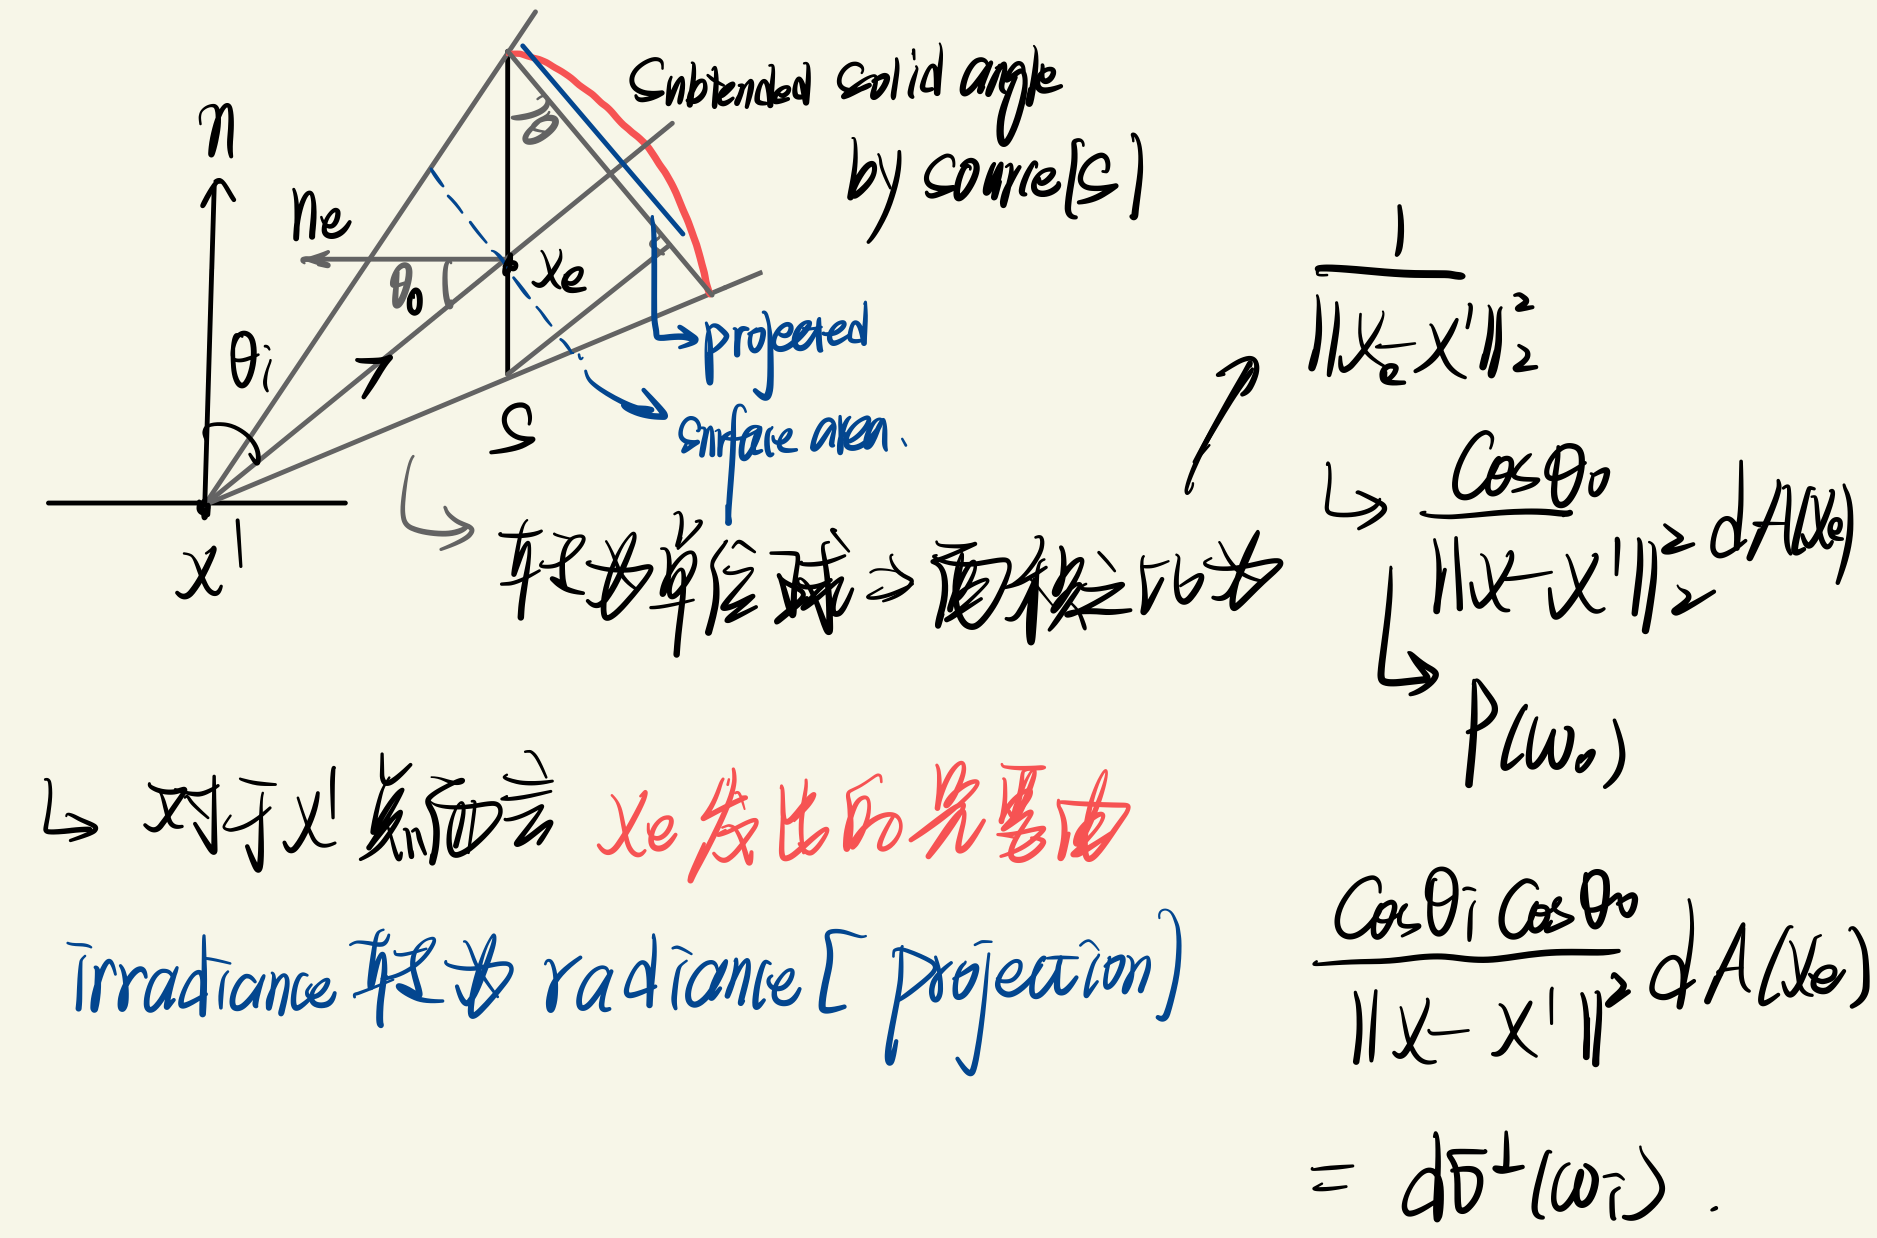 Subtended solid angle
by source(S)
n
ne
θ
θo
xe
θi
projected
surface area.
S
x'
转为单位球 → 面积之比为
1
‖xe - x'‖₂²
cosθo
‖x - x'‖₂² dA(xe)
P(ωo)
对于x'点而言 xe发出的光要由
irradiance 转为 radiance [projection]
cosθi cosθo
‖x - x'‖² dA(xe)
= dσ⊥(ωi).